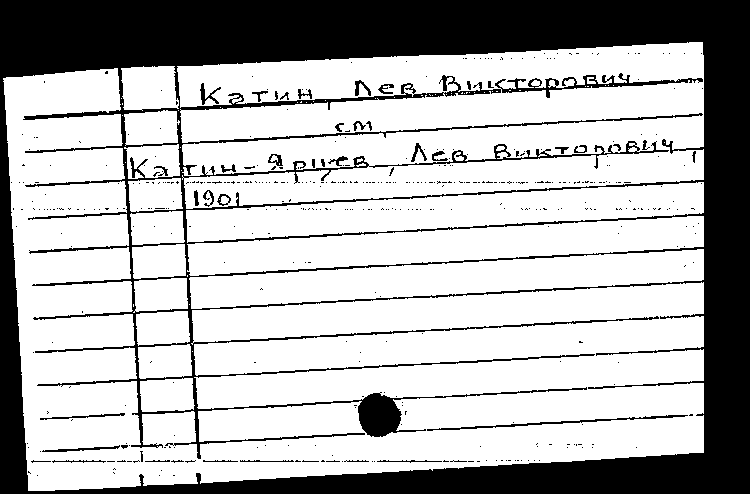 Катин, Лев Викторович
см.
Катин-Ярцев, Лев Викторович,
1901